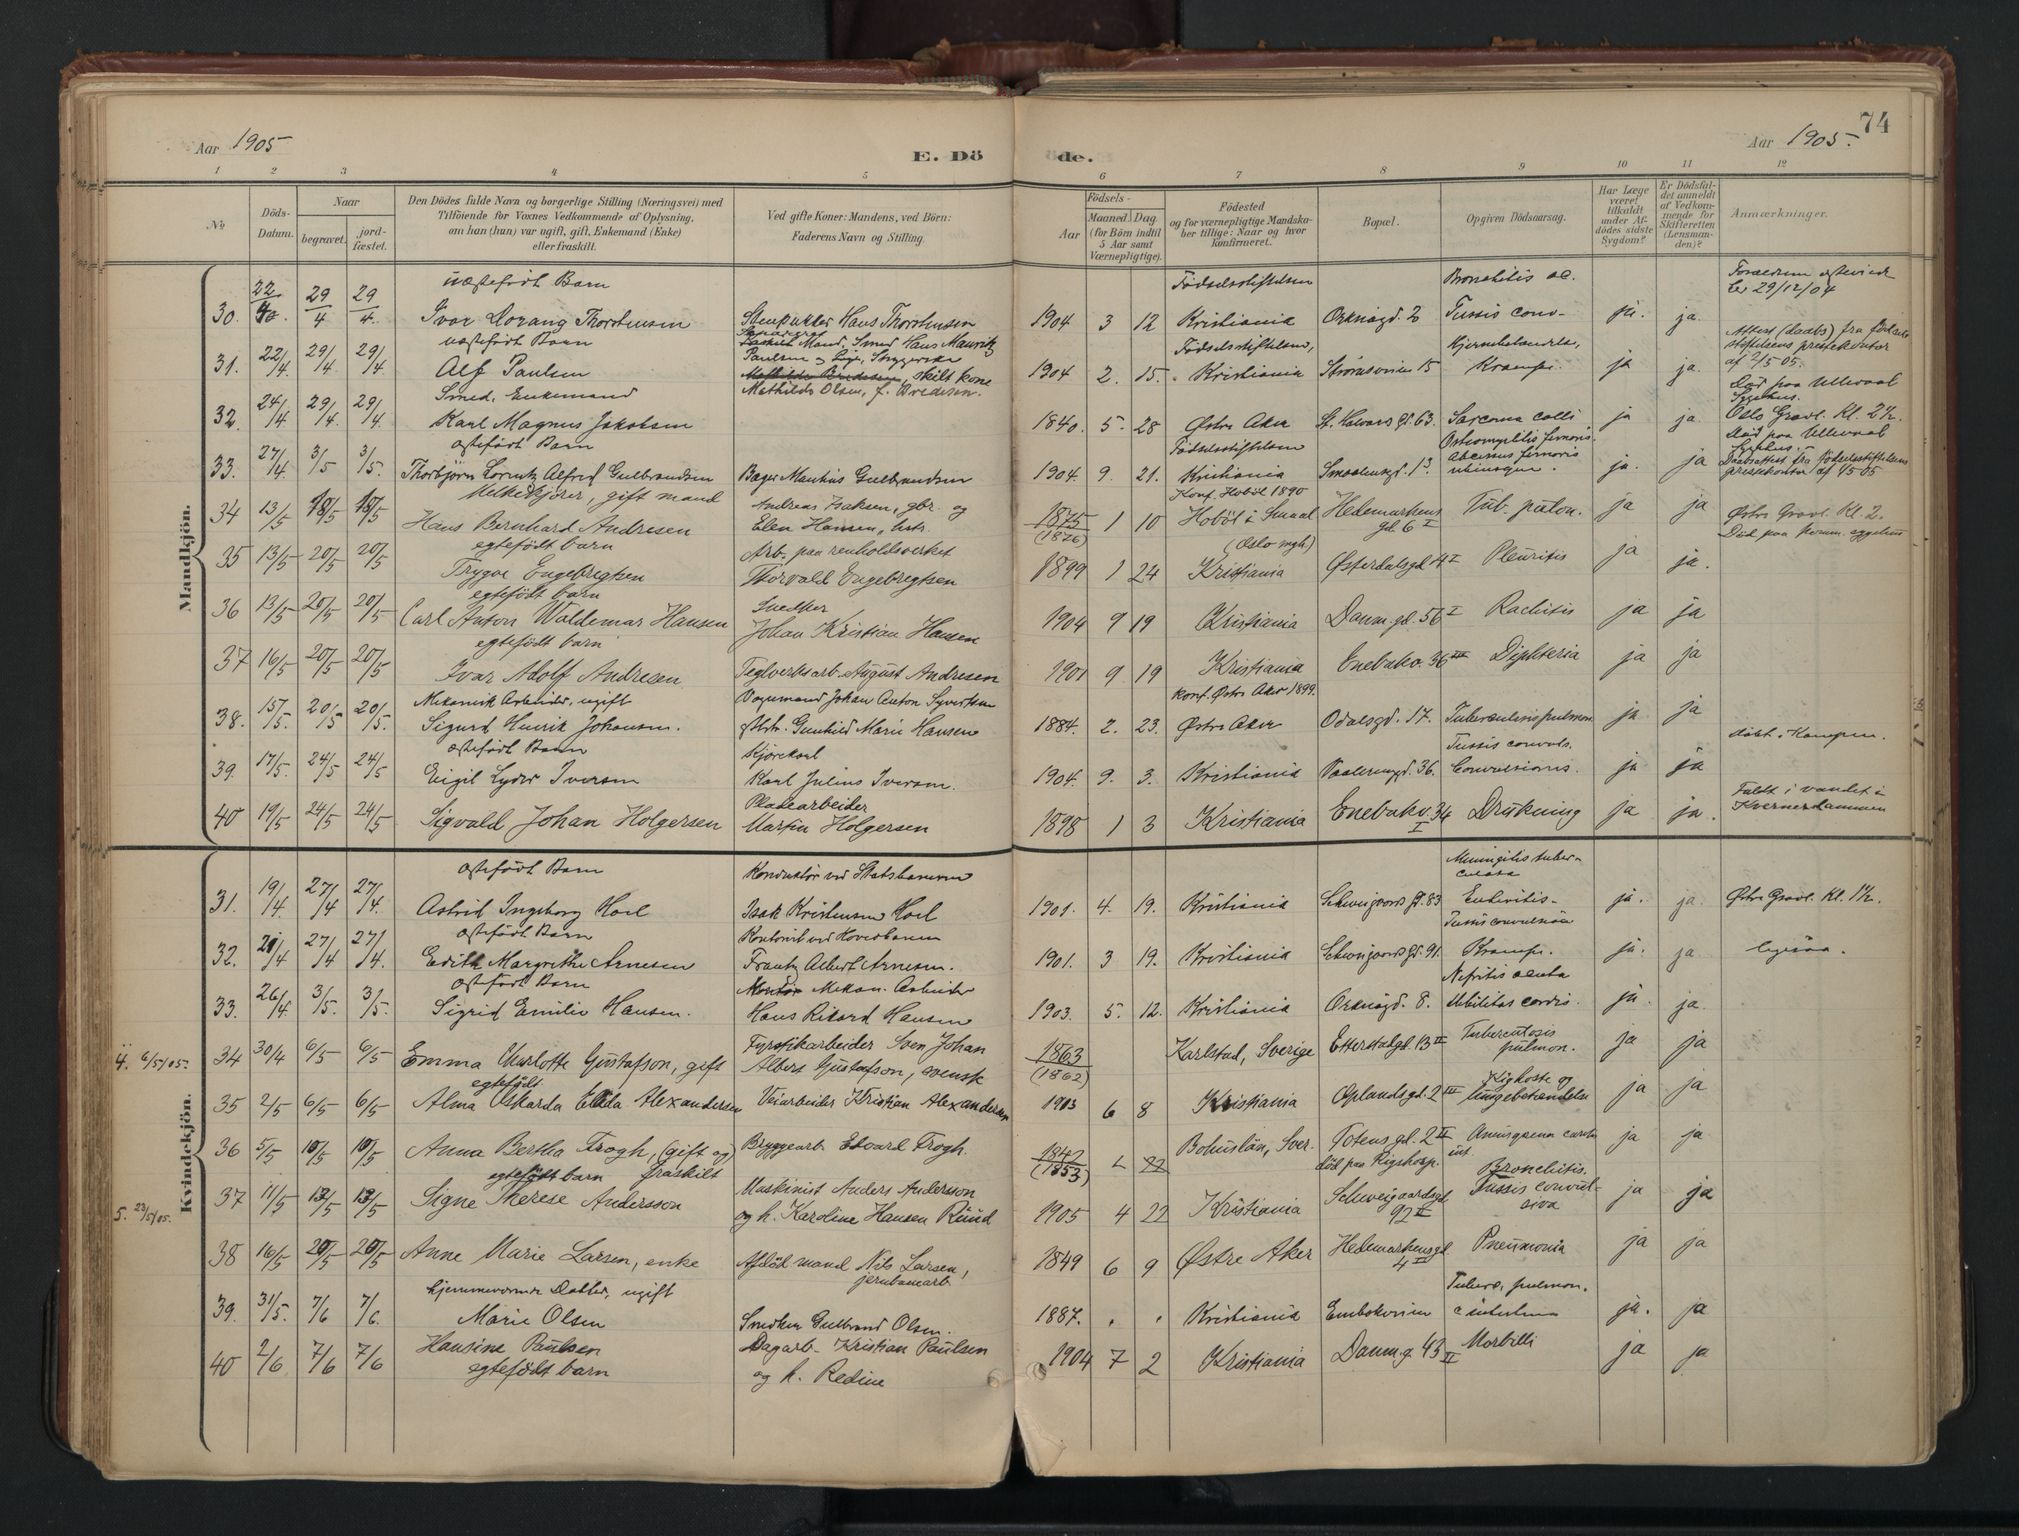 Aar 1905
E. Dö
de.
Aar 1905.
74
1 2 3 4 5 6 7 8 9 10 11 12
No
Döds-Datum.
Naar
begravet.
jord-fæstet.
Den Dödes fulde Navn og borgerlige Stilling (Næringsvei) med
Tilföiende for Voxnes Vedkommende af Oplysning,
om han (hun) var ugift, gift, Enkemand (Enke)
eller fraskilt.
Ved gifte Koner: Mandens, ved Börn:
Faderens Navn og Stilling.
Födsels-
Aar
Maaned. Dag.
(for Börn indtil
5 Aar samt
Værnepligtige).
Födested
og for værnepligtige Mandska-
ber tillige: Naar og hvor
konfirmeret.
Bopæl.
Opgiven Dödsaarsag.
Har Læge
været
tilkaldt
under Af-
dödes sidste
Sygdom?
Er Dödsfal-
det anmeldt
af Vedkom-
mende for
Skifteretten
(Lensman-
den)?
Anmærkninger.
Mandkjön.
uægtefödt Barn Födselsstiftelsen Bronchitis ac.
30. 22/4 29/4 29/4 Ivar Lorang Thorstensen Stenpukker Hans Thorstensen 1904 3 12 Kristiania Orknögd. 2 Tussis conv. ja. ja. 29/12/04
uægtefödt Barn Mand, Smed Hans Mauritz Födselsstiftelsen,
31. 22/4 29/4 29/4 Alf Paulsen Paulsen og skilt kone 1904 2. 15. Kristiania Strömsveien 15 Krampe. ja ja. af 2/5 05.
Smed, Enkemand Mathilde Olsen, f. Bredesen. Död paa Ullevaal Sygehus.
32. 24/4 29/4 29/4 Karl Magnus Jakobsen 1840. 5. 28 Østre Aker St. Halvards gd. 63. Sarcoma colli ja ja. Oslo Gravl. Kl. 2½
ægtefödt Barn Födselsstiftelsen Osteomyelitis femoris. Död paa Ullevaal Sygehus.
33. 27/4 3/5 3/5 Thorbjörn Lorentz Alfred Gulbrandsen Bager Mautius Gulbrandsen 1904. 9. 21. Kristiania Smaalensgd. 13 Abcessus femoris ja. ja Daabsattest fra Födselsstiftelsens
Melkekjörer, gift mand Andreas Isaksen, gbr. og Konf. Hoböl 1890
34 13/5 18/5 18/5 Hans Bernhard Andresen Elen Hansen, hstr. 1875 (1876) 1 10 Hoböl i Smaal (Oslo mgh.) Hedemarkens gd. 6 I Tub. pulm. ja ja Østre Gravl. Kl. 2.
egtefödt barn Arb. paa renholdsverket
35 13/5 20/5 20/5 Trygve Engebregtsen Thorvald Engebregtsen 1899 1 24 Kristiania Østerdalsgd 4 I Pleuritis ja ja.
egtefödt barn Snedker
36 13/5 20/5 20/5 Carl Anton Waldemar Hansen Johan Kristian Hansen 1904 9 19 Kristiania Danm.gd. 56 I Rachitis ja ja
egtefödt barn
37 16/5 20/5 20/5 Ivar Adolf Andresen Teglverksarb. August Andresen 1901 9 19 Kristiania Enebakv. 36 III Diphteria ja ja
Mekanisk Arbeider, ugift Vognmand Johan Anton Syvertsen konf. Østre Aker 1899.
38. 15/5. 20/5 20/5. Sigurd Henrik Johansen. Gunhild Marie Hansen 1884. 2. 23. Østre Aker Odalsgd. 17. Tuberculosis pulmon. ja ja
ægtefödt Barn Kjörekarl Tussis convuls.
39. 17/5. 24/5 24/5 Eigil Lyder Iversen Karl Julius Iversen. 1904. 9. 3. Kristiania Vaalerengd. 36. Convulsiones. ja ja döbt i Kampen.
Pladearbeider
40 19/5 24/5 24/5 Sigvald Johan Holgersen Martin Holgersen 1898 1 3 Kristiania Enebakv. 34 I Drukning ja ja. Faldt i vandet i Kvernerdammen
Kvindekjön.
ægtefödt Barn Konduktör ved Statsbanerne Meningitis tuber-culosa
31. 19/4. 27/4 27/4. Astrid Ingeborg Hoel Isak Kristensen Hoel 1901. 4. 19. Kristiania Schweigaards gd. 83 Enteritis- ja. ja. Østre Gravl. Kl. 1½.
ægtefödt Barn Kontorist ved Hovedbanen Tussis convulsiva
32. 21/4 27/4 27/4. Edith Margrethe Arnesen Frantz Albert Arnesen. 1901. 3 19. Kristiania Schweigaards gd. 91. Krampe. ja. ja ligesaa.
ægtefödt Barn Mekan. Arbeider Nefritis acuta
33. 26/4 3/5. 3/5. Sigrid Emilie Hansen. Hans Rikard Hansen 1903. 5. 12. Kristiania Orknögd. 8. Debilitas cordis. ja. ja.
4. 6/5/05.
34 30/4 6/5 6/5 Emma Charlotte Gustafson, gift Fyrstikarbeider Sven Johan Albert Gustafson, svensk 1863 (1862) Karlstad, Sverige Etterstadgd. 13 II Tuberculosis pulmon. ja ja
egtefödt
35 2/5 6/5 6/5 Alma Oskarda Elida Alexandersen Veiarbeider Kristian Alexandersen 1903 6 8 Kristiania Oplandsgd. 2 III Kighoste og lungebetændelse ja ja
36 5/5 10/5 10/5 Anna Bertha Frogh, (gift og) fraskilt Bryggearb. Edvard Frogh. 1847 (1853) 22 Bohuslän, Sver. Totensgd. 2 II död paa Rigshosp. ja ja
egtefödt barn Bronchitis.
5. 23/5/05.
37 11/5 13/5 13/5 Signe Therese Andersson Maskinist Anders Andersson og h. Karoline Hansen Ruud 1905 4 22 Kristiania Schweigaardsgd. 92 II Tussis convul-siva ja ja
38 16/5 20/5 20/5 Anne Marie Larsen, enke Afdöd mand Nils Larsen, jernbanearb. 1849 6 9 Østre Aker Hedemarkensgd. 4 II Pneumonia ja ja
hjemmeværende Datter, ugift Tuberc. pulmon.
39. 31/5. 7/6 7/6. Marie Olsen Snedker Gulbrand Olsen. 1887. Kristiania ja. ja
40 2/6 7/6 7/6 Hansine Paulsen Dagarb. Kristian Paulsen 1904 7 2 Kristiania Danm.g. 43 II Morbilli ja ja
egtefödt barn og h. Redine